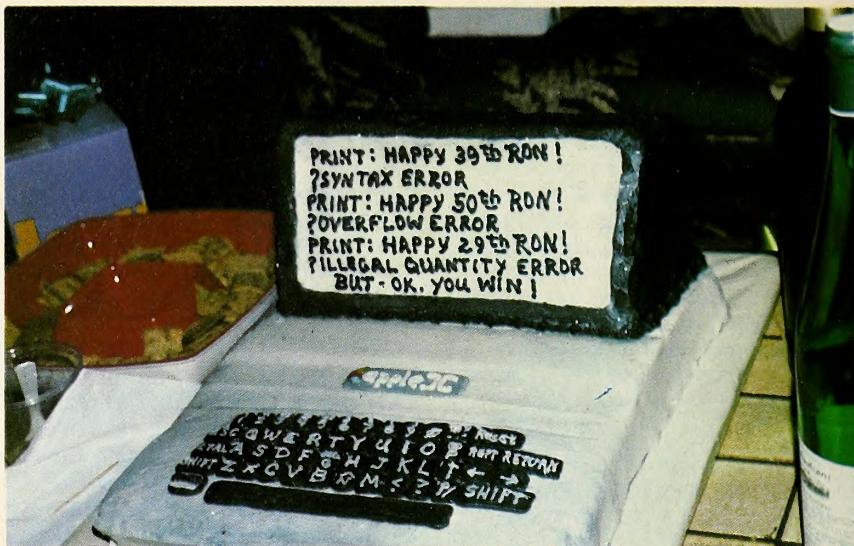 PRINT: HAPPY 39th RON!
?SYNTAX ERROR
PRINT: HAPPY 50th RON!
?OVERFLOW ERROR
PRINT: HAPPY 29th RON!
?ILLEGAL QUANTITY ERROR
BUT-OK, YOU WIN!
apple ][
RESET
Q W E R T Y U I O P REPT RETURN
A S D F G H J K L ↑ ← →
SHIFT Z X C V B N M < ? SHIFT